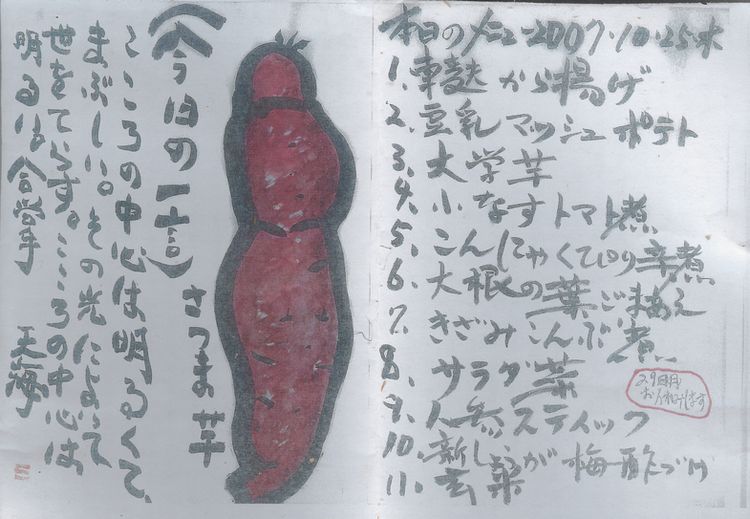 本日のメニュー 2007.10.25 木
1. 車麩 から揚げ
2. 豆乳 マッシュ ポテト
3. 大学芋
4. 小なす トマト煮
5. こんにゃく ぴり辛煮
6. 大根の葉ごまあえ
7. きざみこんぶ煮
8. サラダ菜
9. 人参スティック
10. 新しょうが 梅酢づけ
11. 玄
29日
お休みします
さつま芋
(今日の一言)
こころの中心は明るくて、
まぶしい。その光によって
世をてらす。こころの中心は
明るい 合掌 天海